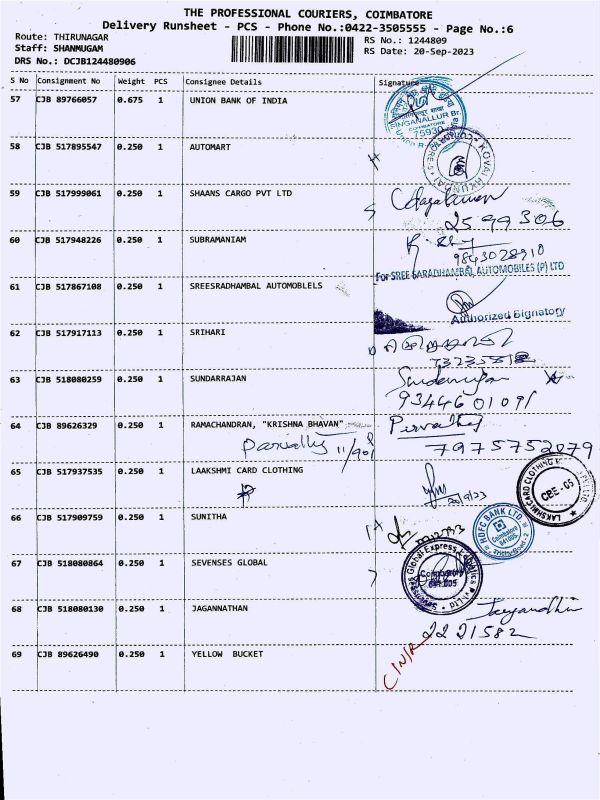 THE PROFESSIONAL COURIERS, COIMBATORE
Delivery Runsheet - PCS - Phone No.:0422-3505555 - Page No.:6
Route: THIRUNAGAR
RS No.: 1244809
Staff: SHANMUGAM
RS Date: 20-Sep-2023
DRS No.: DCJB124480906
S No Consignment No Weight PCS Consignee Details Signature
57 CJB 89766057 0.675 1 UNION BANK OF INDIA
SINGANALLUR Br.
COIMBATORE
75930
58 CJB 517895547 0.250 1 AUTOMART
59 CJB 517999061 0.250 1 SHAANS CARGO PVT LTD
2599306
60 CJB 517948226 0.250 1 SUBRAMANIAM
9843028910
For SREE SARADHAMBAL AUTOMOBILES (P) LTD
61 CJB 517867108 0.250 1 SREESRADHAMBAL AUTOMOBLELS
Authorized Signatory
62 CJB 517917113 0.250 1 SRIHARI
63 CJB 518080259 0.250 1 SUNDARRAJAN
9344601091
64 CJB 89626329 0.250 1 RAMACHANDRAN, "KRISHNA BHAVAN"
7975752079
65 CJB 517937535 1.250 1 LAAKSHMI CARD CLOTHING
20/9/23
CBE - 05
66 CJB 517909759 0.250 1 SUNITHA
HDFC BANK LTD.
Coimbatore
641005
67 CJB 518080864 0.250 1 SEVENSES GLOBAL
Sevenses Global Express Logistics Pvt Ltd
Coimbatore
641 005
68 CJB 518080130 0.250 1 JAGANNATHAN
2221582
69 CJB 89626490 0.250 1 YELLOW BUCKET